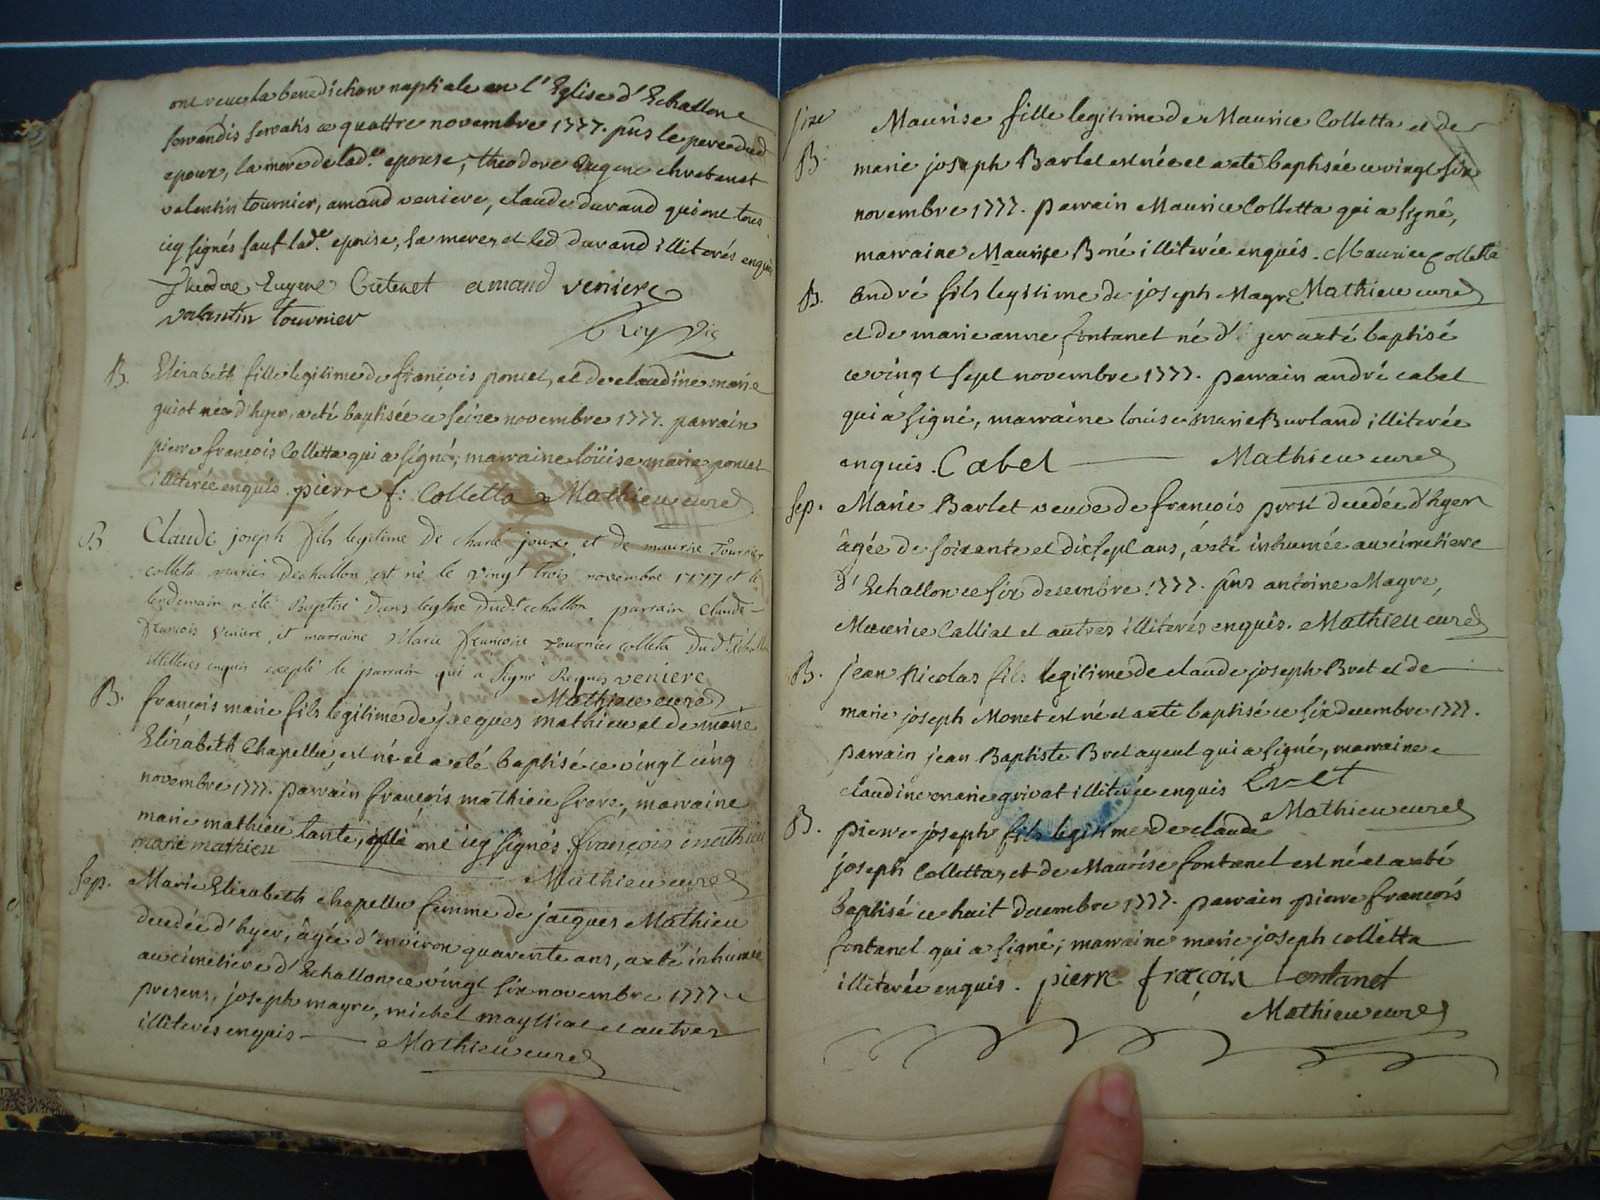 ont receu la benediction nuptiale en l'Eglise d'Echallon
servandis servatis ce quattre novembre 1777. pñs le pere dud
epoux, la mere de lad.e epouse, theodore Eugene chretenet
valentin tournier, amand veniere, claude durand qui ont tous
icy signés sauf lad.e epouse, sa mere et led durand illiterés enquis
Theodore Eugene Cretenet amand veniere
valantin tournier
Roy Vic
B. Elisabeth fille legitime de françois poncet, et de claudine marie
guiot née d'hyer, a eté baptisée ce seize novembre 1777. parrain
pierre françois Colletta qui a signé, marraine loüise marie poncet
illiterée enquis. pierre f: Colletta Mathieu curé
B Claude joseph fils legitime de charle joux, et de maurise Tournier
colleta mariés dechallon, est né le vingt trois novembre 1777 et le
lendemain a été Baptisé dans leglise dud.t echallon, parrain claude
françois veniere, et marraine Marie françoise tournier colleta dud.t
illitteres enquis excepté le parrain qui a signé Requis veniere
Mathieu curé
B. françois marie fils legitime de jacques mathieu et de marie
Elisabeth Chapellu, est né et a eté baptisé ce vingt cinq
novembre 1777. parrain françois mathieu frere, marraine
marie mathieu tante, ont icy signés. françois mathieu
marie mathieu
Mathieu curé
Sep. Marie Elisabeth chapellu femme de jacques Mathieu
decedée d'hyer, âgée d'environ quarante ans, a eté inhumée
au cimetiere d'Echallon ce vingt six novembre 1777
presens, joseph magre, michel maylliat et autres
illiterés enquis Mathieu curé
Maurise fille legitime de Maurice Colletta et de
B. marie joseph Barlet est née et a eté baptisée ce vingt six
novembre 1777. parrain Maurice Colletta qui a signé,
marraine Maurise Boné illiterée enquis. Maurice Colletta
B. André fils legitime de joseph Magre Mathieu curé
et de marie anne fontanel né d'hyer a eté baptisé
ce vingt sept novembre 1777. parrain andré cabel
qui a signé, marraine louise marie Burland illiterée
enquis. Cabel Mathieu curé
Sep. Marie Barlet veuve de françois prost decedée d'hyer
âgée de soixante et dix sept ans, a eté inhumée au cimetiere
d'Echallon ce six decembre 1777. pñs antoine Magre,
Maurice Calliat et autres illiterés enquis. Mathieu curé
B. jean Nicolas fils legitime de claude joseph Bret et de
marie joseph Monet est né et a eté baptisé ce six decembre 1777.
parrain jean Baptiste Bret ayeul qui a signé, marraine
claudine marie grivat illiterée enquis Bret
Mathieu curé
B. pierre joseph fils legitime de claude
joseph Colletta, et de Maurise fontanel est né et a eté
baptisé ce huit decembre 1777. parrain pierre françois
fontanel qui a signé; marraine marie joseph colletta
illiterée enquis. pierre fraçois fontanet
Mathieu curé